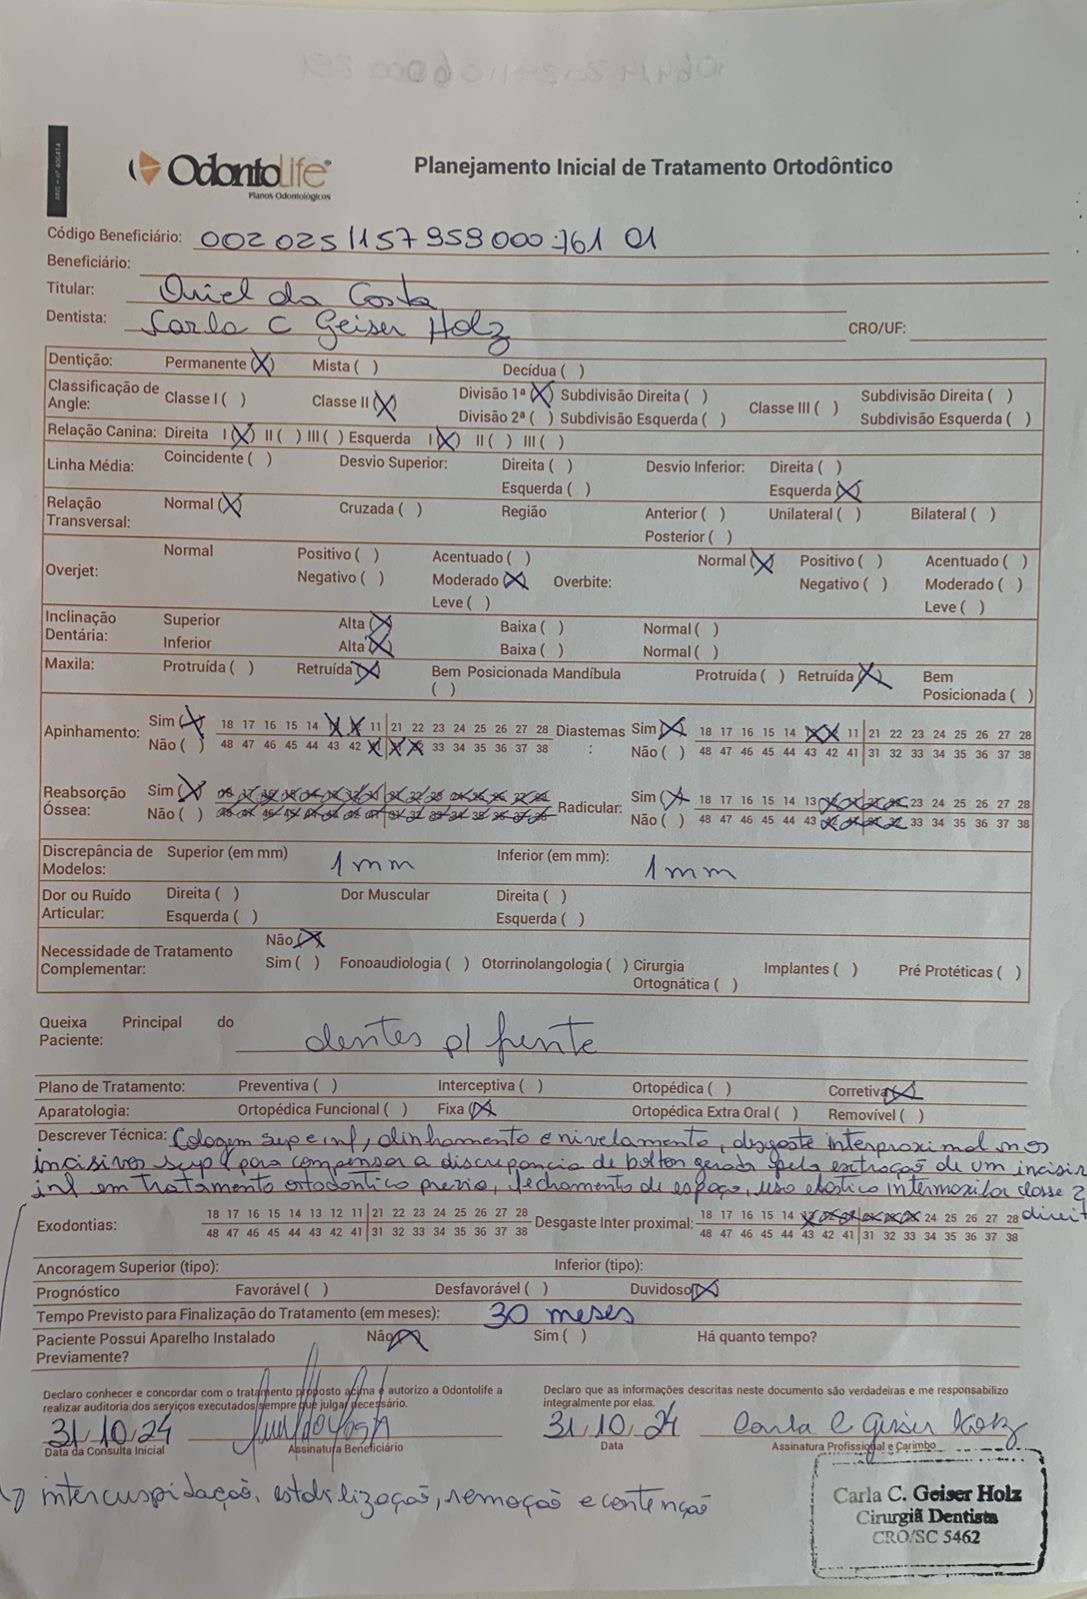 ANS - nº 406414
OdontoLife®
Planos Odontológicos
Planejamento Inicial de Tratamento Ortodôntico
Código Beneficiário: 002 025 1157 959 000 761 01
Beneficiário:
Titular: Oriel da Costa
Dentista: Carla C Geiser Holz CRO/UF:
Dentição: Permanente (X) Mista ( ) Decídua ( )
Classificação de Angle: Classe I ( ) Classe II (X) Divisão 1ª (X) Subdivisão Direita ( ) Classe III ( ) Subdivisão Direita ( )
Divisão 2ª ( ) Subdivisão Esquerda ( ) Subdivisão Esquerda ( )
Relação Canina: Direita I (X) II ( ) III ( ) Esquerda I (X) II ( ) III ( )
Linha Média: Coincidente ( ) Desvio Superior: Direita ( ) Desvio Inferior: Direita ( )
Esquerda ( ) Esquerda (X)
Relação Transversal: Normal (X) Cruzada ( ) Região Anterior ( ) Unilateral ( ) Bilateral ( )
Posterior ( )
Overjet: Normal Positivo ( ) Acentuado ( ) Overbite: Normal (X) Positivo ( ) Acentuado ( )
Negativo ( ) Moderado (X) Negativo ( ) Moderado ( )
Leve ( ) Leve ( )
Inclinação Dentária: Superior Alta (X) Baixa ( ) Normal ( )
Inferior Alta (X) Baixa ( ) Normal ( )
Maxila: Protruída ( ) Retruída (X) Bem Posicionada ( ) Mandíbula Protruída ( ) Retruída (X) Bem Posicionada ( )
Apinhamento: Sim (X) 18 17 16 15 14 X X 11 21 22 23 24 25 26 27 28 Diastemas: Sim (X) 18 17 16 15 14 X X 11 21 22 23 24 25 26 27 28
Não ( ) 48 47 46 45 44 43 42 X X X 33 34 35 36 37 38 Não ( ) 48 47 46 45 44 43 42 41 31 32 33 34 35 36 37 38
Reabsorção Óssea: Sim (X) Radicular: Sim (X) 18 17 16 15 14 13 X X X X 23 24 25 26 27 28
Não ( ) Não ( ) 48 47 46 45 44 43 X X X X 33 34 35 36 37 38
Discrepância de Modelos: Superior (em mm) 1mm Inferior (em mm): 1mm
Dor ou Ruído Articular: Direita ( ) Dor Muscular Direita ( )
Esquerda ( ) Esquerda ( )
Necessidade de Tratamento Complementar: Não (X)
Sim ( ) Fonoaudiologia ( ) Otorrinolangologia ( ) Cirurgia Ortognática ( ) Implantes ( ) Pré Protéticas ( )
Queixa Principal do Paciente: dentes p/ frente
Plano de Tratamento: Preventiva ( ) Interceptiva ( ) Ortopédica ( ) Corretiva (X)
Aparatologia: Ortopédica Funcional ( ) Fixa (X) Ortopédica Extra Oral ( ) Removível ( )
Descrever Técnica: Colagem sup e inf, alinhamento e nivelamento, desgaste interproximal nos
incisivos sup p/ para compensar a discrepancia de bolton gerada pela extração de um incisivo
inf em tratamento ortodontico previo, fechamento de espaço, uso elástico intermaxilar classe 2
direit
Exodontias: 18 17 16 15 14 13 12 11 21 22 23 24 25 26 27 28 Desgaste Inter proximal: 18 17 16 15 14 X X X X X X 24 25 26 27 28
48 47 46 45 44 43 42 41 31 32 33 34 35 36 37 38 48 47 46 45 44 43 42 41 31 32 33 34 35 36 37 38
Ancoragem Superior (tipo): Inferior (tipo):
Prognóstico Favorável ( ) Desfavorável ( ) Duvidoso (X)
Tempo Previsto para Finalização do Tratamento (em meses): 30 meses
Paciente Possui Aparelho Instalado Previamente? Não (X) Sim ( ) Há quanto tempo?
Declaro conhecer e concordar com o tratamento proposto acima e autorizo a Odontolife a
realizar auditoria dos serviços executados sempre que julgar necessário.
Declaro que as informações descritas neste documento são verdadeiras e me responsabilizo
integralmente por elas.
31, 10, 24 31, 10, 24 Carla C Geiser Holz
Data da Consulta Inicial Assinatura Beneficiário Data Assinatura Profissional e Carimbo
intercuspidação, estabilização, remoção e contenção
Carla C. Geiser Holz
Cirurgiã Dentista
CRO/SC 5462